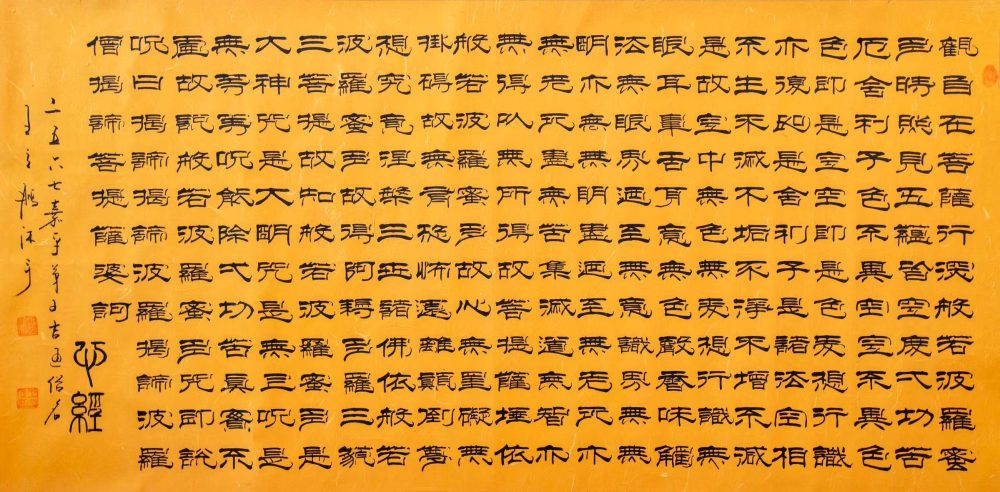 觀自在菩薩行深般若波羅蜜
多時照見五蘊皆空度弌切苦
厄舍利子色不異空空不異色
色即是空空即是色受想行識
亦復如是舍利子是諸法空相
不生不滅不垢不淨不增不減
是故空中無色無受想行識無
眼耳鼻舌身意無色聲香味觸
法無眼界迺至無意識界無無
明亦無無明盡迺至無老死亦
無老死盡無苦集滅道無智亦
無得以無所得故菩提薩埵依
般若波羅蜜多故心無罣礙無
掛碍故無有恐怖遠離顛倒夢
想究竟涅槃三世諸佛依般若
波羅蜜多故得阿耨多羅三藐
三菩提故知般若波羅蜜多是
大神咒是大明咒是無上呪是
無等等呪能除弌切苦真實不
虛故說般若波羅蜜多咒即說
呪曰揭諦揭諦波羅揭諦波羅
僧揭諦菩提薩婆訶
心經
二五六七嘉平